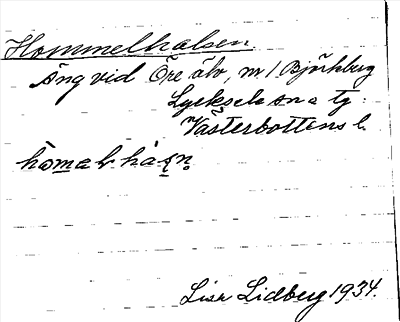 Hommelhalsen
Äng vid Öre älv, m / Björkberg
Lycksele sn o tg.
Västerbottens l.
Lisa Lidberg 1934.